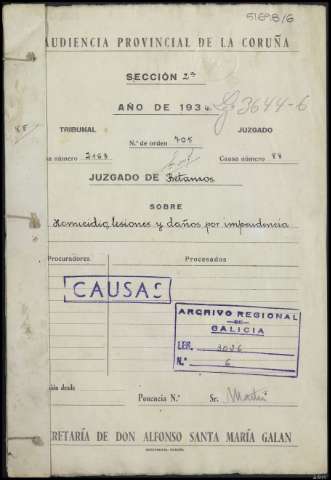 51698/6
AUDIENCIA PROVINCIAL DE LA CORUÑA
SECCIÓN 2ª
AÑO DE 193
3644-6
TRIBUNAL JUZGADO
N.º de orden 705
88
sa número 2163 Causa número 88
JUZGADO DE Betanzos
SOBRE
Homicidio, lesiones y daños por imprudencia
Procuradores Procesados
CAUSAS
ARCHIVO REGIONAL
DE
GALICIA
LEG. 3036
N.º 6
sión desde
Ponencia N.º Sr.
CRETARÍA DE DON ALFONSO SANTA MARÍA GALAN